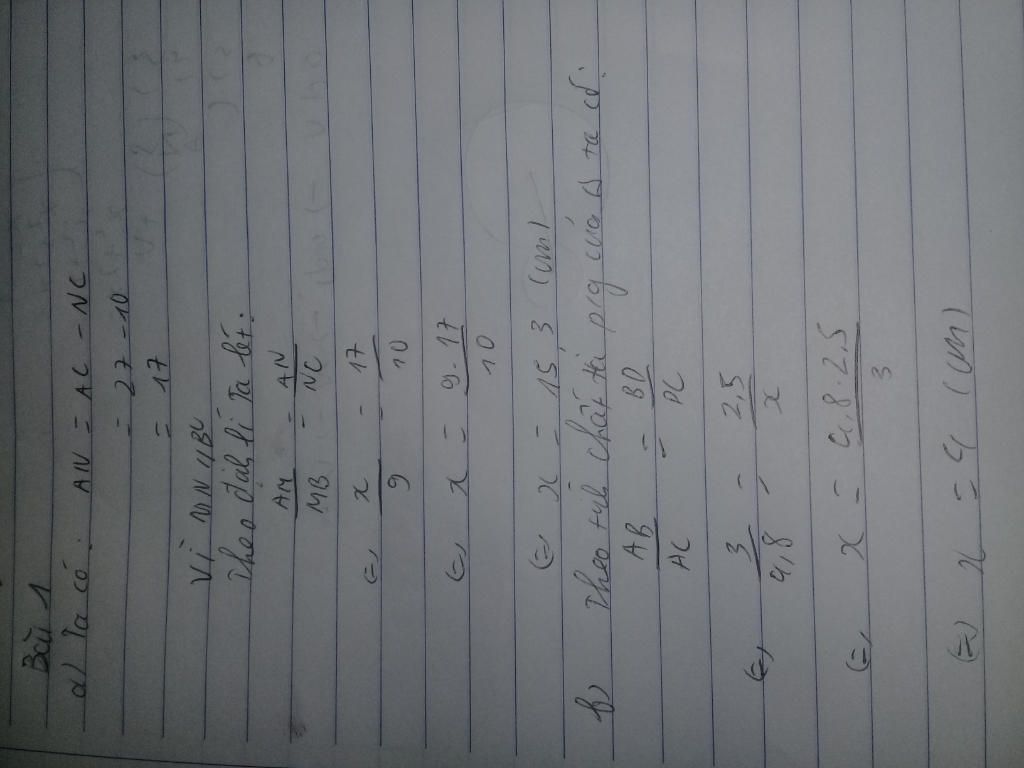 Bài 1
a) Ta có: AN = AC - NC
= 27 - 10
= 17
Vì MN // BC
Theo định lí Ta lét.
AM/MB = AN/NC
(=) x/9 = 17/10
(=) x = 9.17/10
(=) x = 15,3 (cm)
b) Theo tính chất tia p/g của Δ ta có.
AB/AC = BD/DC
(=) 3/4,8 = 2,5/x
(=) x = 4,8.2,5/3
(=) x = 4 (cm)